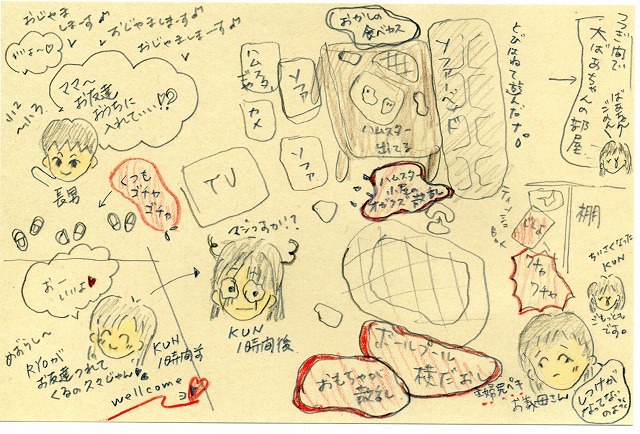 おじゃましまーす♪
おじゃましまーす♪
おじゃましまーす♪
ママ〜
お友達
おうちに
入れていい!?
長男
くつも
ゴチャ
ゴチャ
おー
いいよ
めずらし〜
RYOが
お友達つれて
くるのスキじゃん
KUN
1時間前
wellcome
マジっすか!?
KUN
1時間後
TV
ハムスター
カメ
ソファ
ソファ
おかしの
食べカス
ハムスター
出てる
ソファーベッド
とびはねて遊んだナ。
ハムスター
小屋の
オガクズ
ティッシュ
Box
ボールプール
様だお
おもちゃが
散乱
つづき間で
大ばあちゃんの部屋
ばあちゃん
ごめん
棚
グチャ
グチャ
ちいさくなった
KUN
ごもっとも
です。
主婦完ペキ
お義母さん
しつけが
なってない